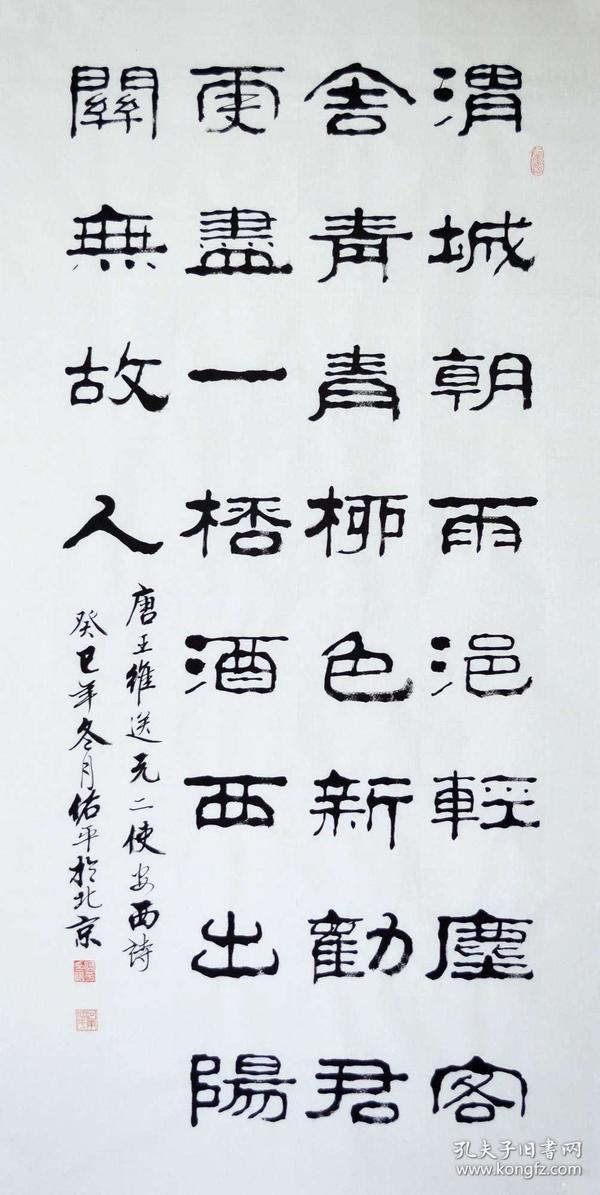 渭城朝雨浥輕塵客
舍青青柳色新勸君
更盡一桮酒西出陽
關無故人
唐王維送元二使安西詩
癸巳年冬月佑平於北京
孔夫子旧书网
www.kongfz.com